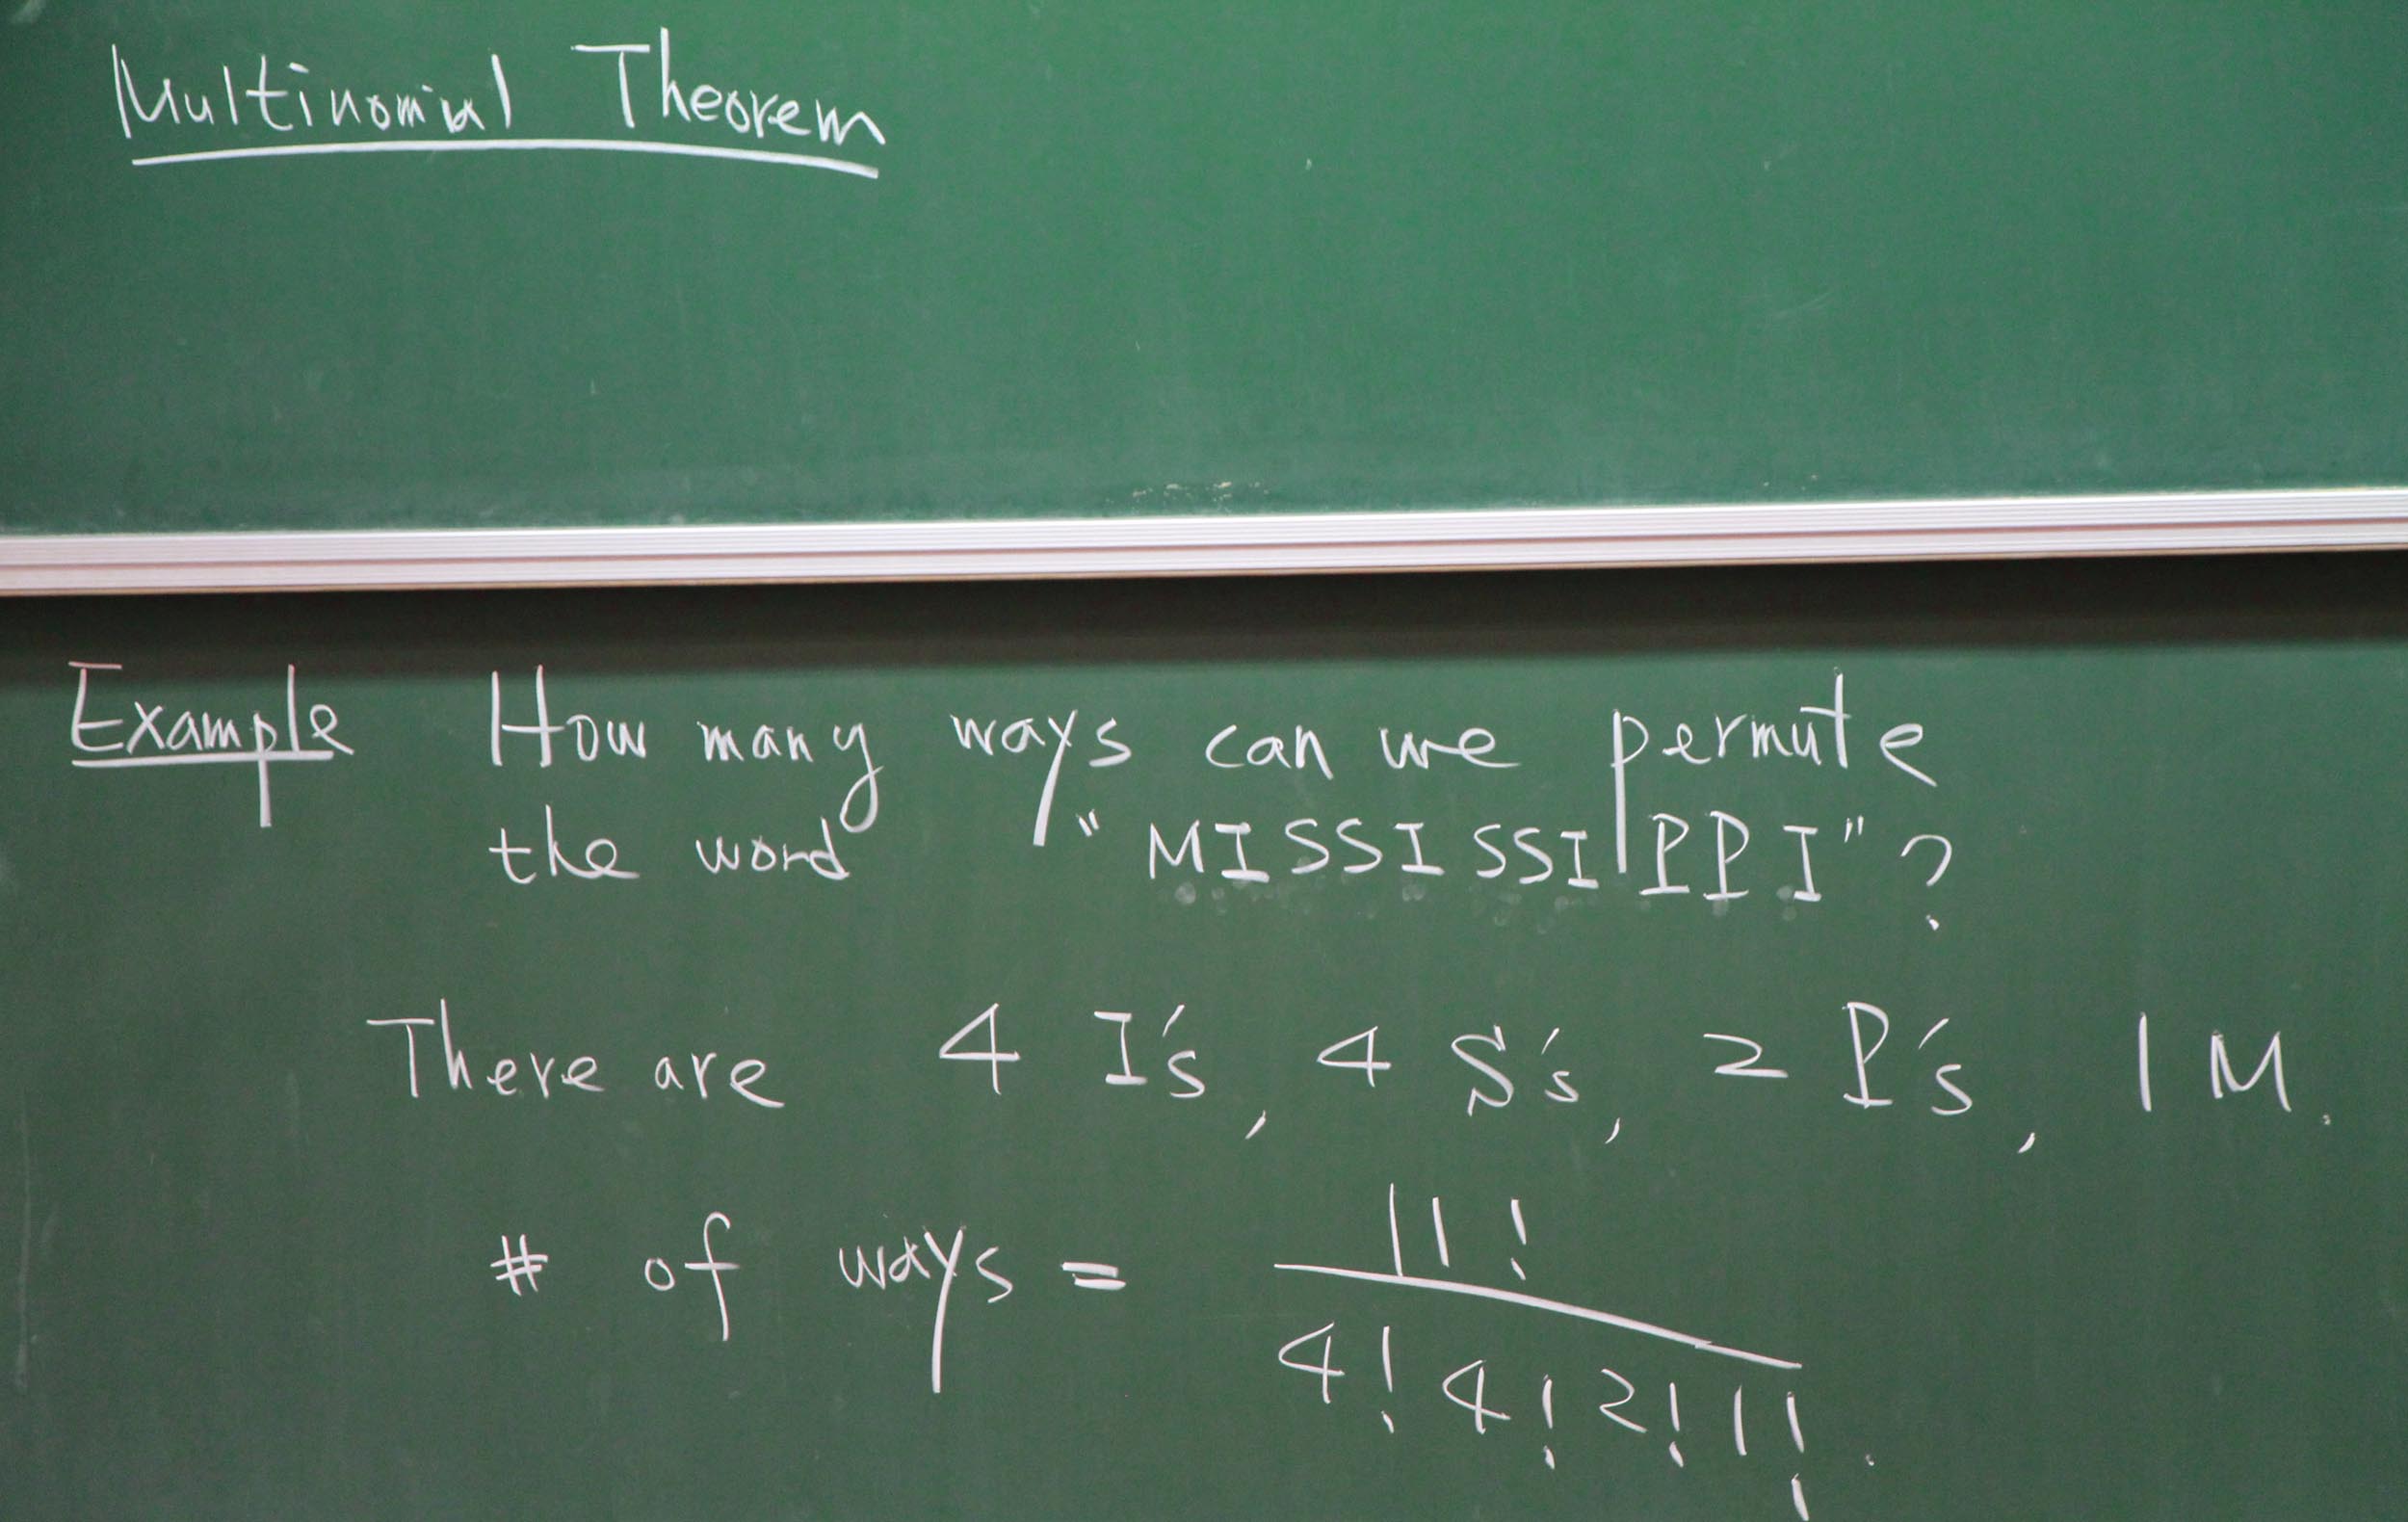 Multinomial Theorem
Example How many ways can we permute
the word "MISSISSIPPI"?
There are 4 I's, 4 S's, 2 P's, 1 M.
# of ways = 11!
4! 4! 2! 1!.